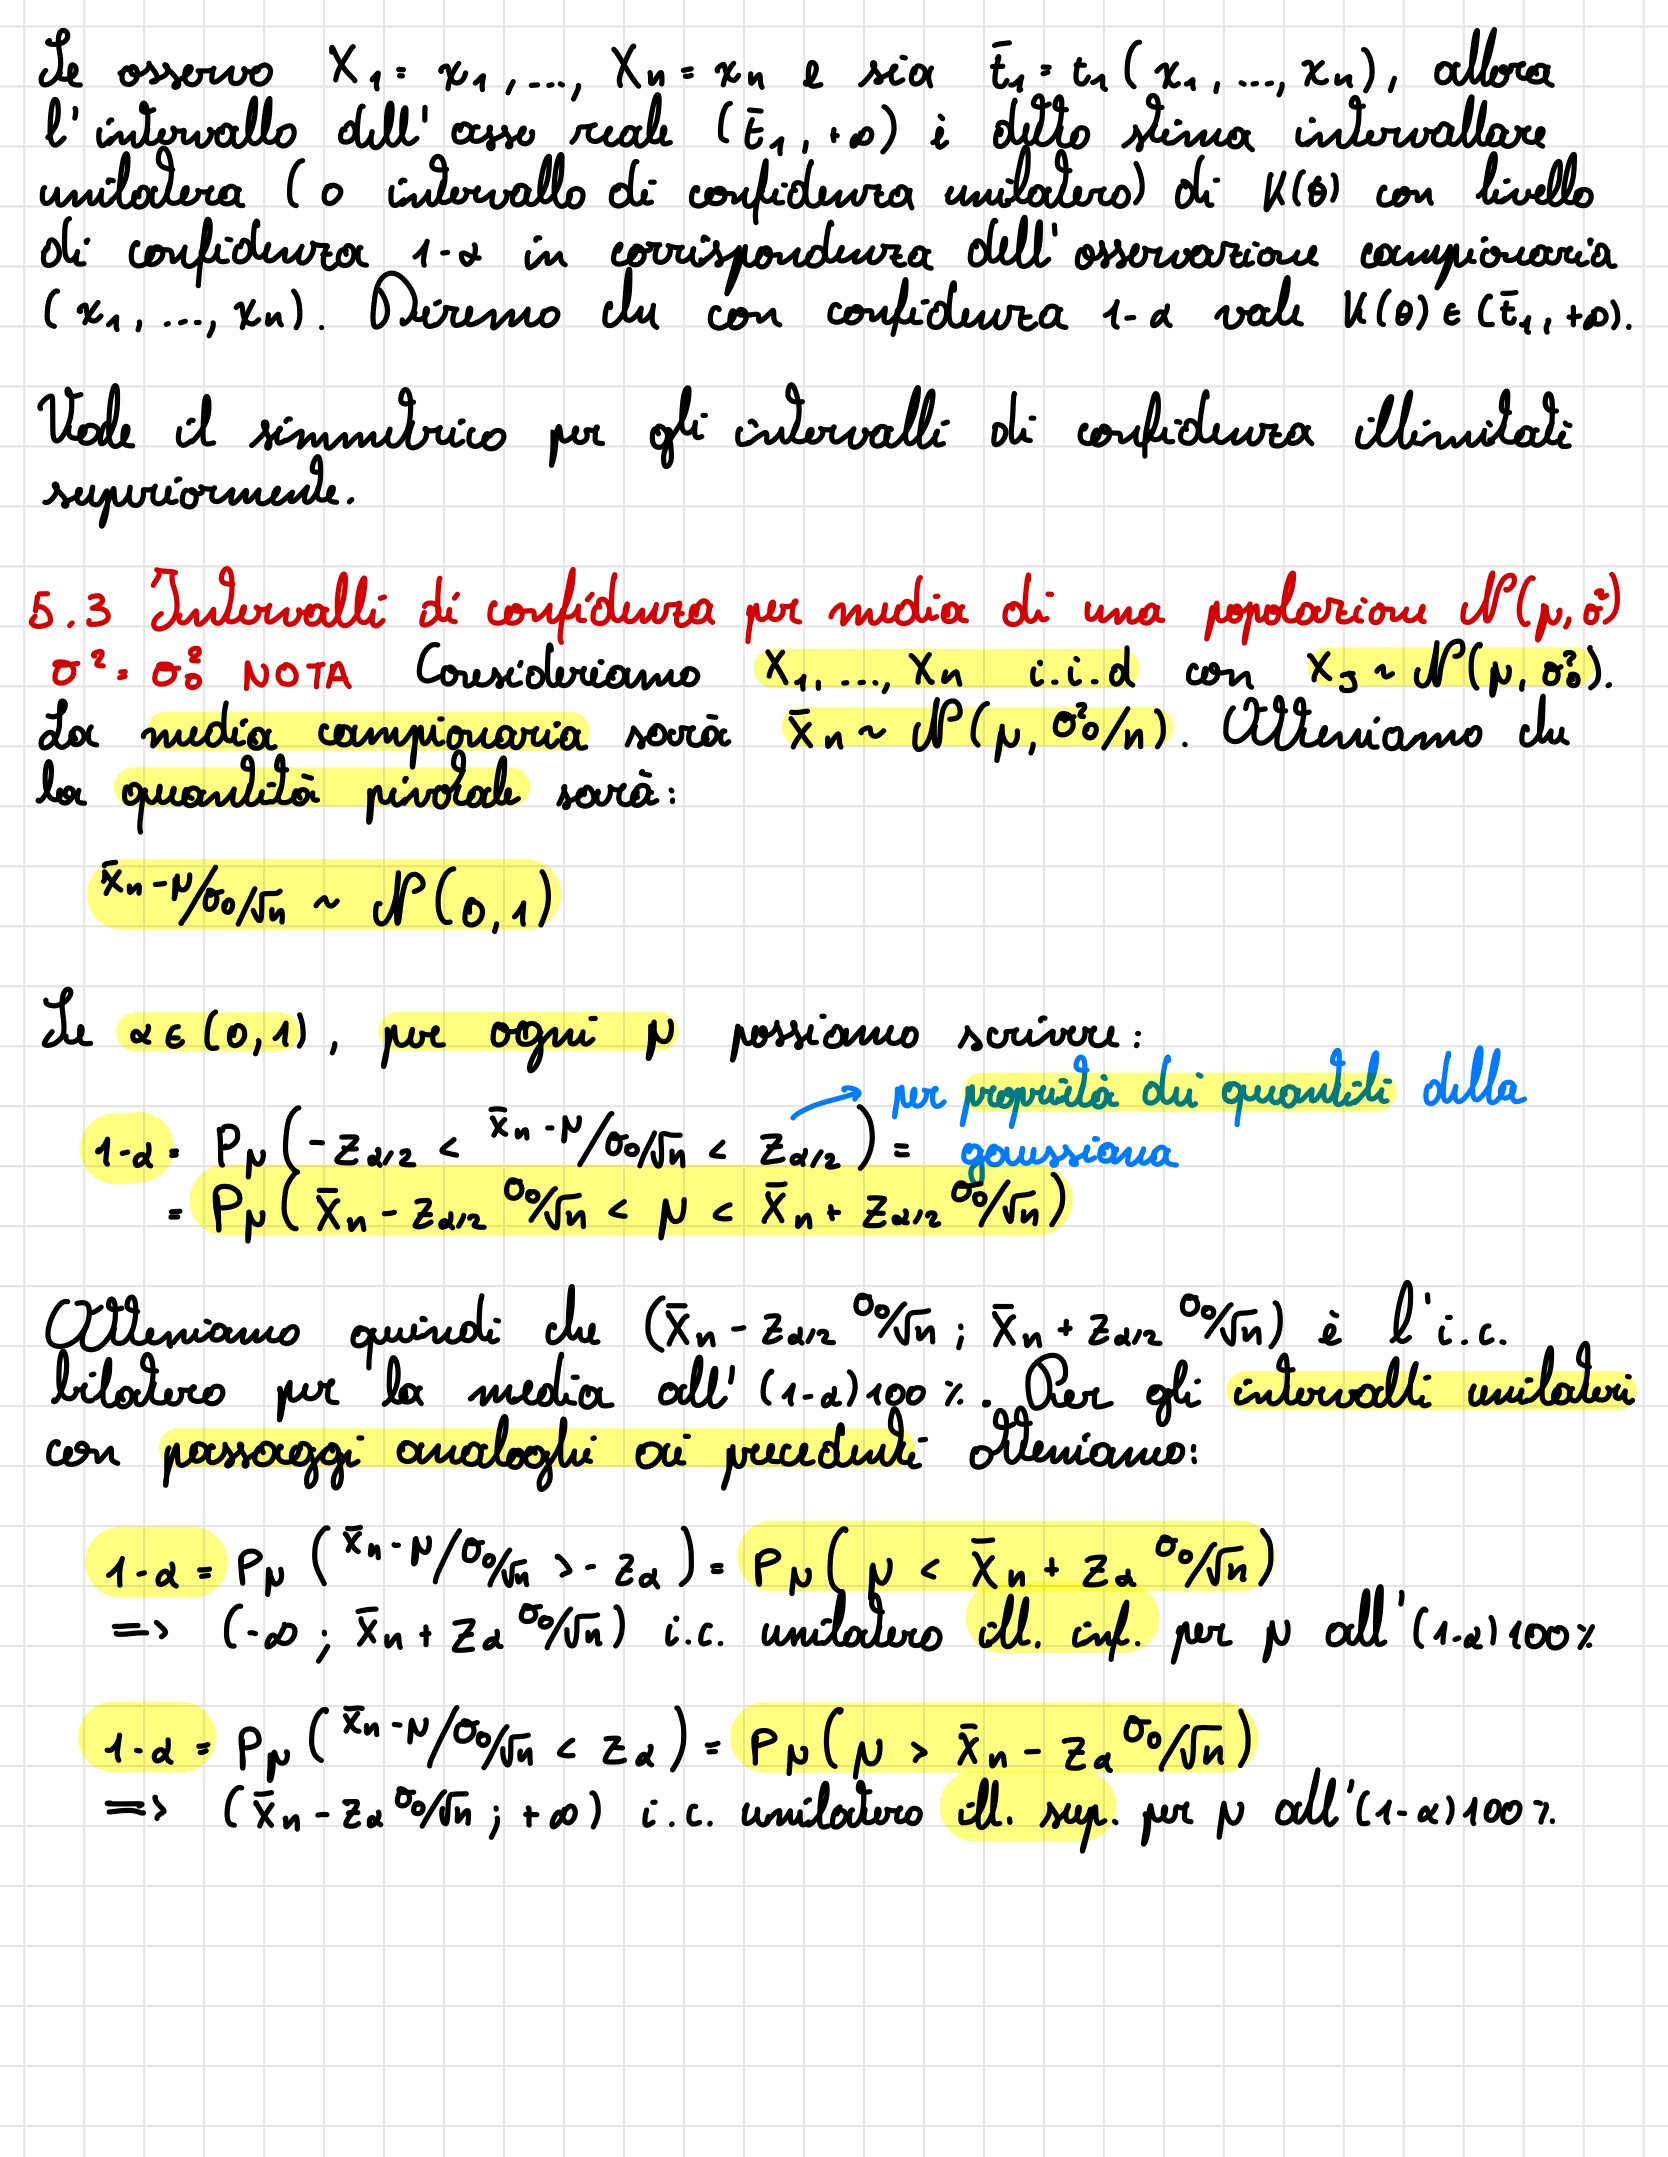 Se osservo X₁ = x₁, ..., Xn = xn e sia t̄₁ = t₁(x₁, ..., xn), allora
l'intervallo dell'asse reale (t̄₁, +∞) è detto stima intervallare
unilatera (o intervallo di confidenza unilatero) di K(θ) con livello
di confidenza 1-α in corrispondenza dell'osservazione campionaria
(x₁, ..., xn). Diremo che con confidenza 1-α vale K(θ) ∈ (t̄₁, +∞).
Vale il simmetrico per gli intervalli di confidenza illimitati
superiormente.
5.3 Intervalli di confidenza per media di una popolazione N(μ, σ²)
σ² = σ₀² NOTA Consideriamo X₁, ..., Xn i.i.d con XJ ~ N(μ, σ₀²).
La media campionaria sarà X̄n ~ N(μ, σ₀²/n). Otteniamo che
la quantità pivotale sarà:
X̄n - μ/σ₀/√n ~ N(0,1)
Se α ∈ (0,1), per ogni μ possiamo scrivere:
per proprietà dei quantili della
1-α = Pμ(-zα/2 < X̄n - μ/σ₀/√n < zα/2) = gaussiana
= Pμ(X̄n - zα/2 σ₀/√n < μ < X̄n + zα/2 σ₀/√n)
Otteniamo quindi che (X̄n - zα/2 σ₀/√n ; X̄n + zα/2 σ₀/√n) è l'i.c.
bilatero per la media all'(1-α)100%. Per gli intervalli unilateri
con passaggi analoghi ai precedenti otteniamo:
1-α = Pμ(X̄n - μ/σ₀/√n > -zα) = Pμ(μ < X̄n + zα σ₀/√n)
=> (-∞ ; X̄n + zα σ₀/√n) i.c. unilatero ill. inf. per μ all'(1-α)100%
1-α = Pμ(X̄n - μ/σ₀/√n < zα) = Pμ(μ > X̄n - zα σ₀/√n)
=> (X̄n - zα σ₀/√n ; +∞) i.c. unilatero ill. sup. per μ all'(1-α)100%.